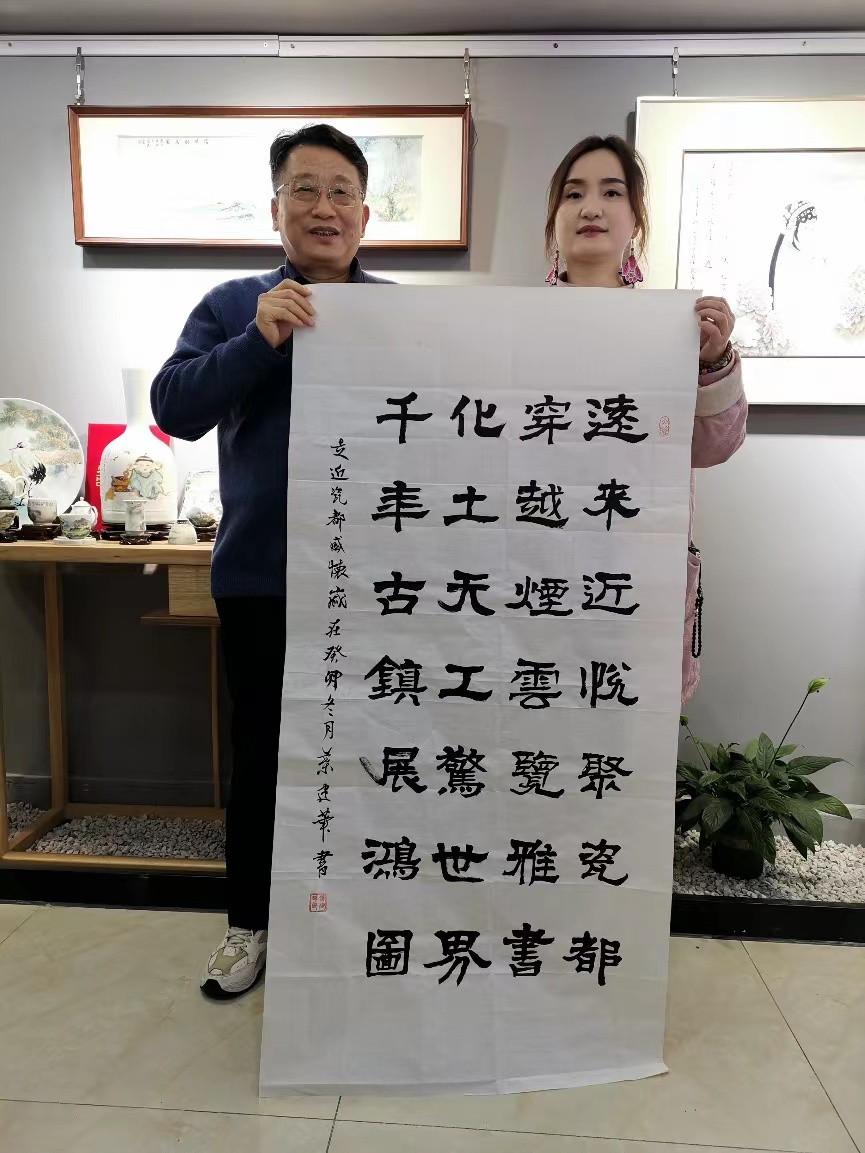 逺来近悅聚瓷都
穿越煙雲覽雅書
化土天工驚世界
千年古鎮展鴻圖
走近瓷都感懷歲在癸卯冬月葉建華書